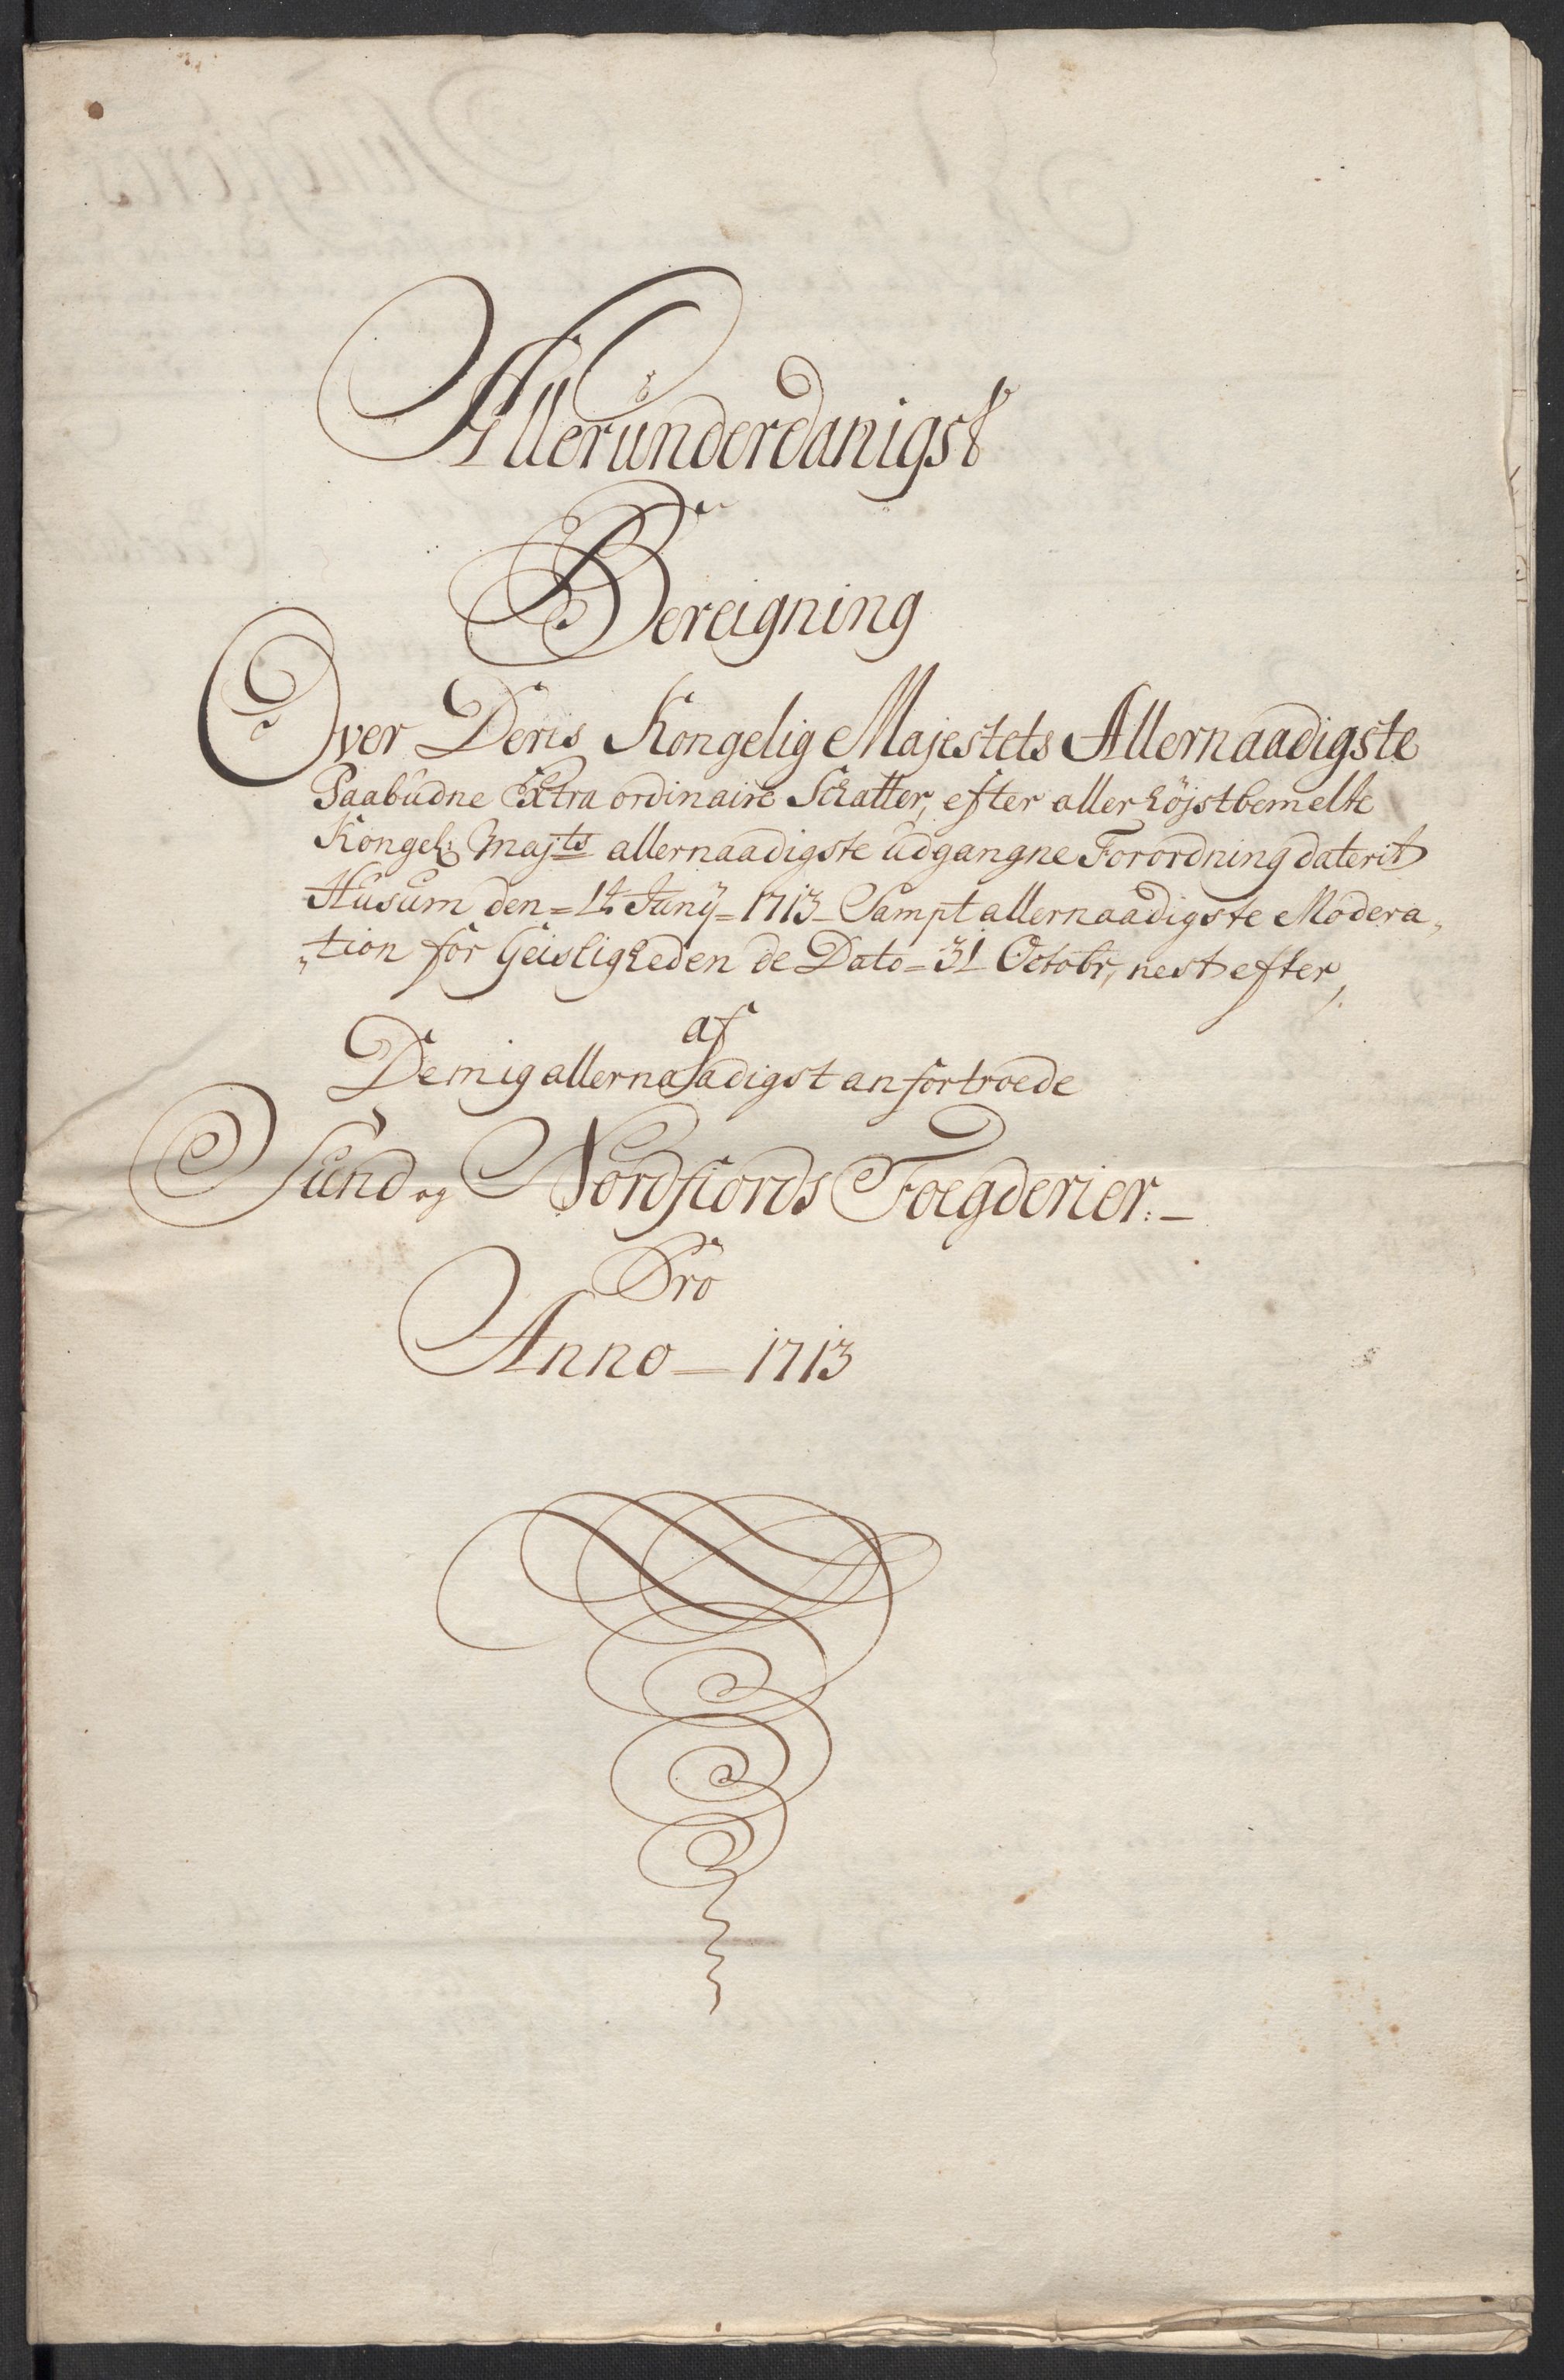 Allerunderdanigst
Bereigning
Over Deris Kongelig Majestets Allernaadigste
Paabudne Extra ordinaire Schatter, efter allerhöjstbemelte
Kongel: Majts allernaadigste udgangne Forordning daterit
Husum den = 14 Junÿ = 1713 _ Sampt allernaadigste Modera„
„tion for Geisligheden de Dato = 31 _ Octobr, nest efter,
af
De mig allernaadigst anfortroede
Sund og Nordfiords Foegderier. _
Pro
Anno _ 1713